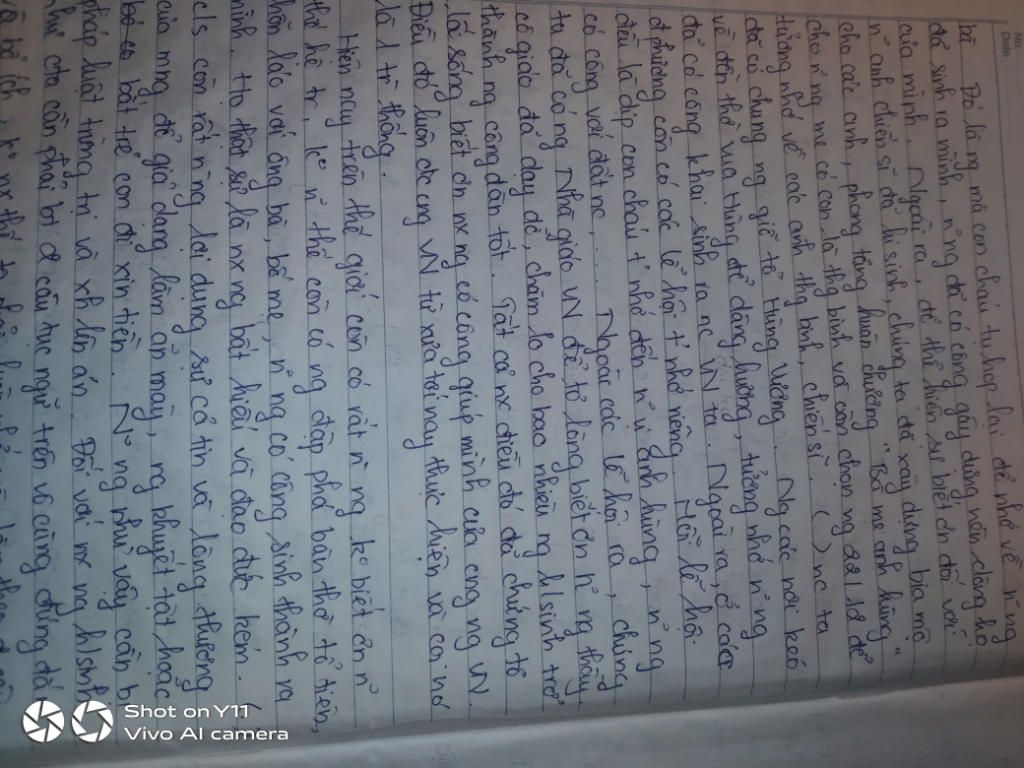 No.
Date
bè. Đó là ng mà con cháu tụ họp lại để nhớ về n~ng
đã sinh ra mình, n~ng đã có công gây dựng nên dòng họ
của mình. Ngoài ra, để thể hiện sự biết ơn đối với
n~ anh chiến sĩ đã hi sinh, chúng ta đã xây dựng bia mộ
cho các anh, phong tặng huân chương "Bà mẹ anh hùng"
cho n~ng mẹ có con là thg binh và còn chọn ng 22/12 để
tưởng nhớ về các anh thg binh, chiến sĩ. ( ) nc ta
đã có chung ng giỗ tổ Hùng Vương. Ng các nơi kéo
về đền thờ vua Hùng để dâng hương, tưởng nhớ n~ng
đã có công khai sinh ra nc VN ta. Ngoài ra ở các
địa phương còn có các lễ hội t' nhớ riêng. Mỗi lễ hội
đều là dịp con cháu t' nhớ đến n~ vị anh hùng, n~ng
có công với đất nc,... Ngoài các lễ hội ra, chúng
ta đã có ng Nhà giáo VN để tỏ lòng biết ơn n~ng thầy,
cô giáo đã dạy dỗ, chăm lo cho bao nhiêu ng h/sinh trở
thành ng công dân tốt. Tất cả nx điều đó đã chứng tỏ
lối sống biết ơn nx ng có công giúp mình của cng ng VN.
Điều đó luôn đc cng VN từ xưa tới nay thực hiện và coi nó
là 1 tr thống.
Hiện nay trên thế giới còn có rất n~ ng ko biết ơn n~
thế hệ tr, ko n~ thế còn có ng đập phá bàn thờ tổ tiên,
hỗn láo với ông bà, bố mẹ, n~ ng có công sinh thành ra
mình. Họ thật sự là nx ng bất hiếu và đạo đức kém. (
cls còn rất n~ng lợi dụng sự cả tin và lòng thương
của mng để giả dạng làm ăn mày, ng khuyết tật hoặc
bắt trẻ con đi xin tiền. N~ ng như vậy cần bị
pháp luật trừng trị và xh lên án. Đối với mx ng h/sinh
như cta cần phải bi
câu tục ngữ trên vô cùng đúng đắ
và bổ ích,
Shot on Y11
Vivo AI camera